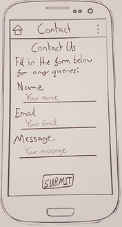 Contact
Contact Us
Fill in the form below
for any queries:
Name
Your name
Email
Your Email
Message
Your message
SUBMIT